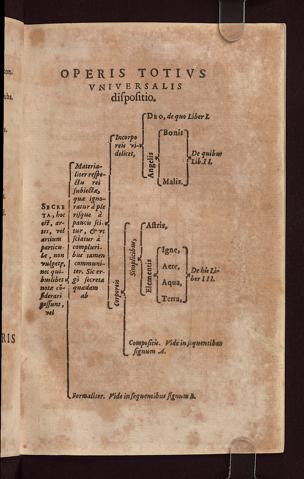 OPERIS TOTIVS
VNIVERSALIS
dispositio.
SECRE
TA, hoc
est, ar-
tes, vel
artium
particu-
læ, non
vulgatæ,
nec qui-
buslibet
notæ cō-
siderari
possunt,
vel
Materia-
liter respe-
ctu rei
subiectæ,
quæ igno-
ratur à ple
risque à
paucis sci-
tur, & vt
sciatur à
complurí-
bus tamen
communi-
ter. Sic er-
gò secreta
quædam
ab
Incorpo
reis vi-
delicet,
DEO, de quo Liber I.
Angelis
Bonis
Malis.
De quibus
Lib. II.
Corporeis
Simplicibus,
Astris,
Elementis
Igne,
Aere,
Aqua,
Terra,
De his Li-
ber III.
Compositis. Vide in sequentibus
signum A.
Formaliter. Vide in sequentibus signum B.
RIS